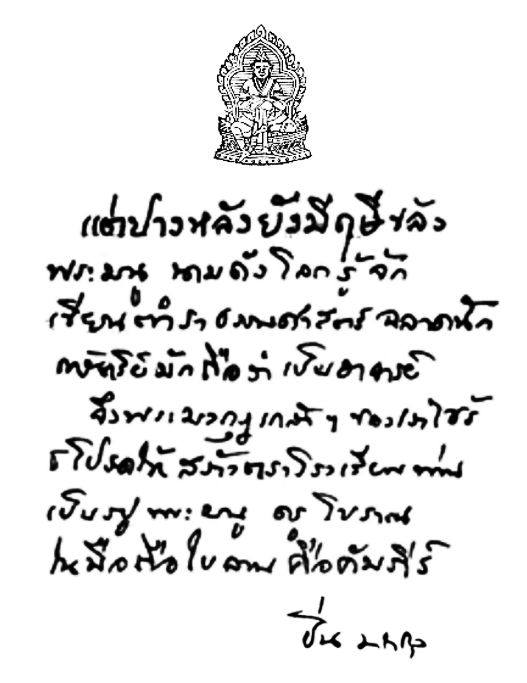 แต่ปางหลังยังมีฤษีขลัง
พระมนู นามดังโลกรู้จัก
เขียนตำราธรรมศาสตร์ฉลาดนัก
กษัตริย์มักถือว่าเป็นอาจารย์
จึงพระมงกุฎเกล้าฯ ของเราไซร้
ธ โปรดให้สร้างตราโรงเรียนท่าน
เป็นรูปพระมนู ณ โบราณ
ในมือถือใบลานคือคัมภีร์
ปิ่น มาลากุล